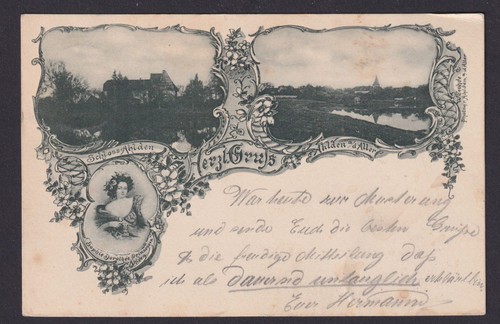 Schloss Ahlden
Herzl. Gruss
Ahlden a/d Aller
War heute zur Musterung
und sende Euch die besten Grüße
& die freudige Mitteilung daß
ich als dauernd untauglich erklärt bin.
Euer Hermann